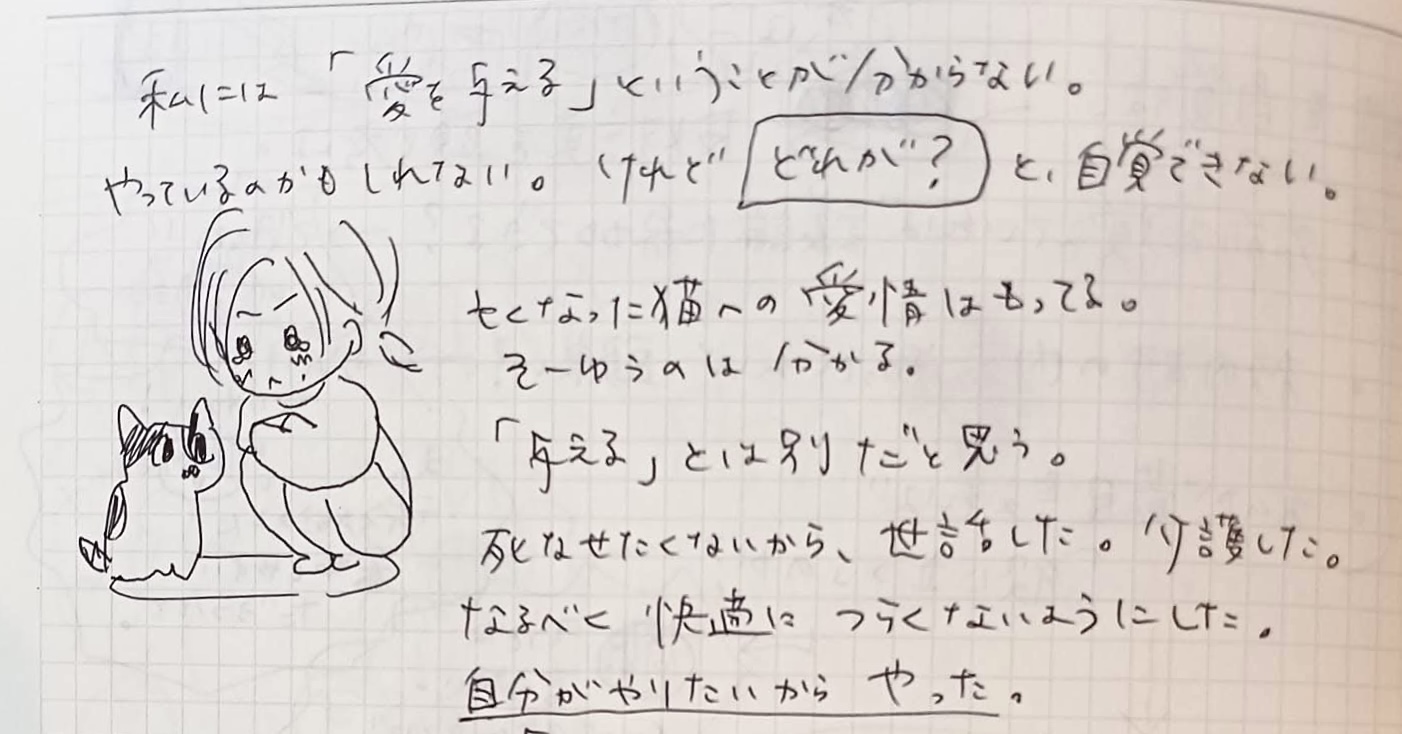 私には「愛を与える」ということが分からない。
やっているのかもしれない。けれど どれが? と、自覚できない。
亡くなった猫への愛情はもってる。
そーゆうのは分かる。
「与える」とは別だと思う。
死なせたくないから、世話した。介護した。
なるべく快適に つらくないようにした。
自分がやりたいから やった。